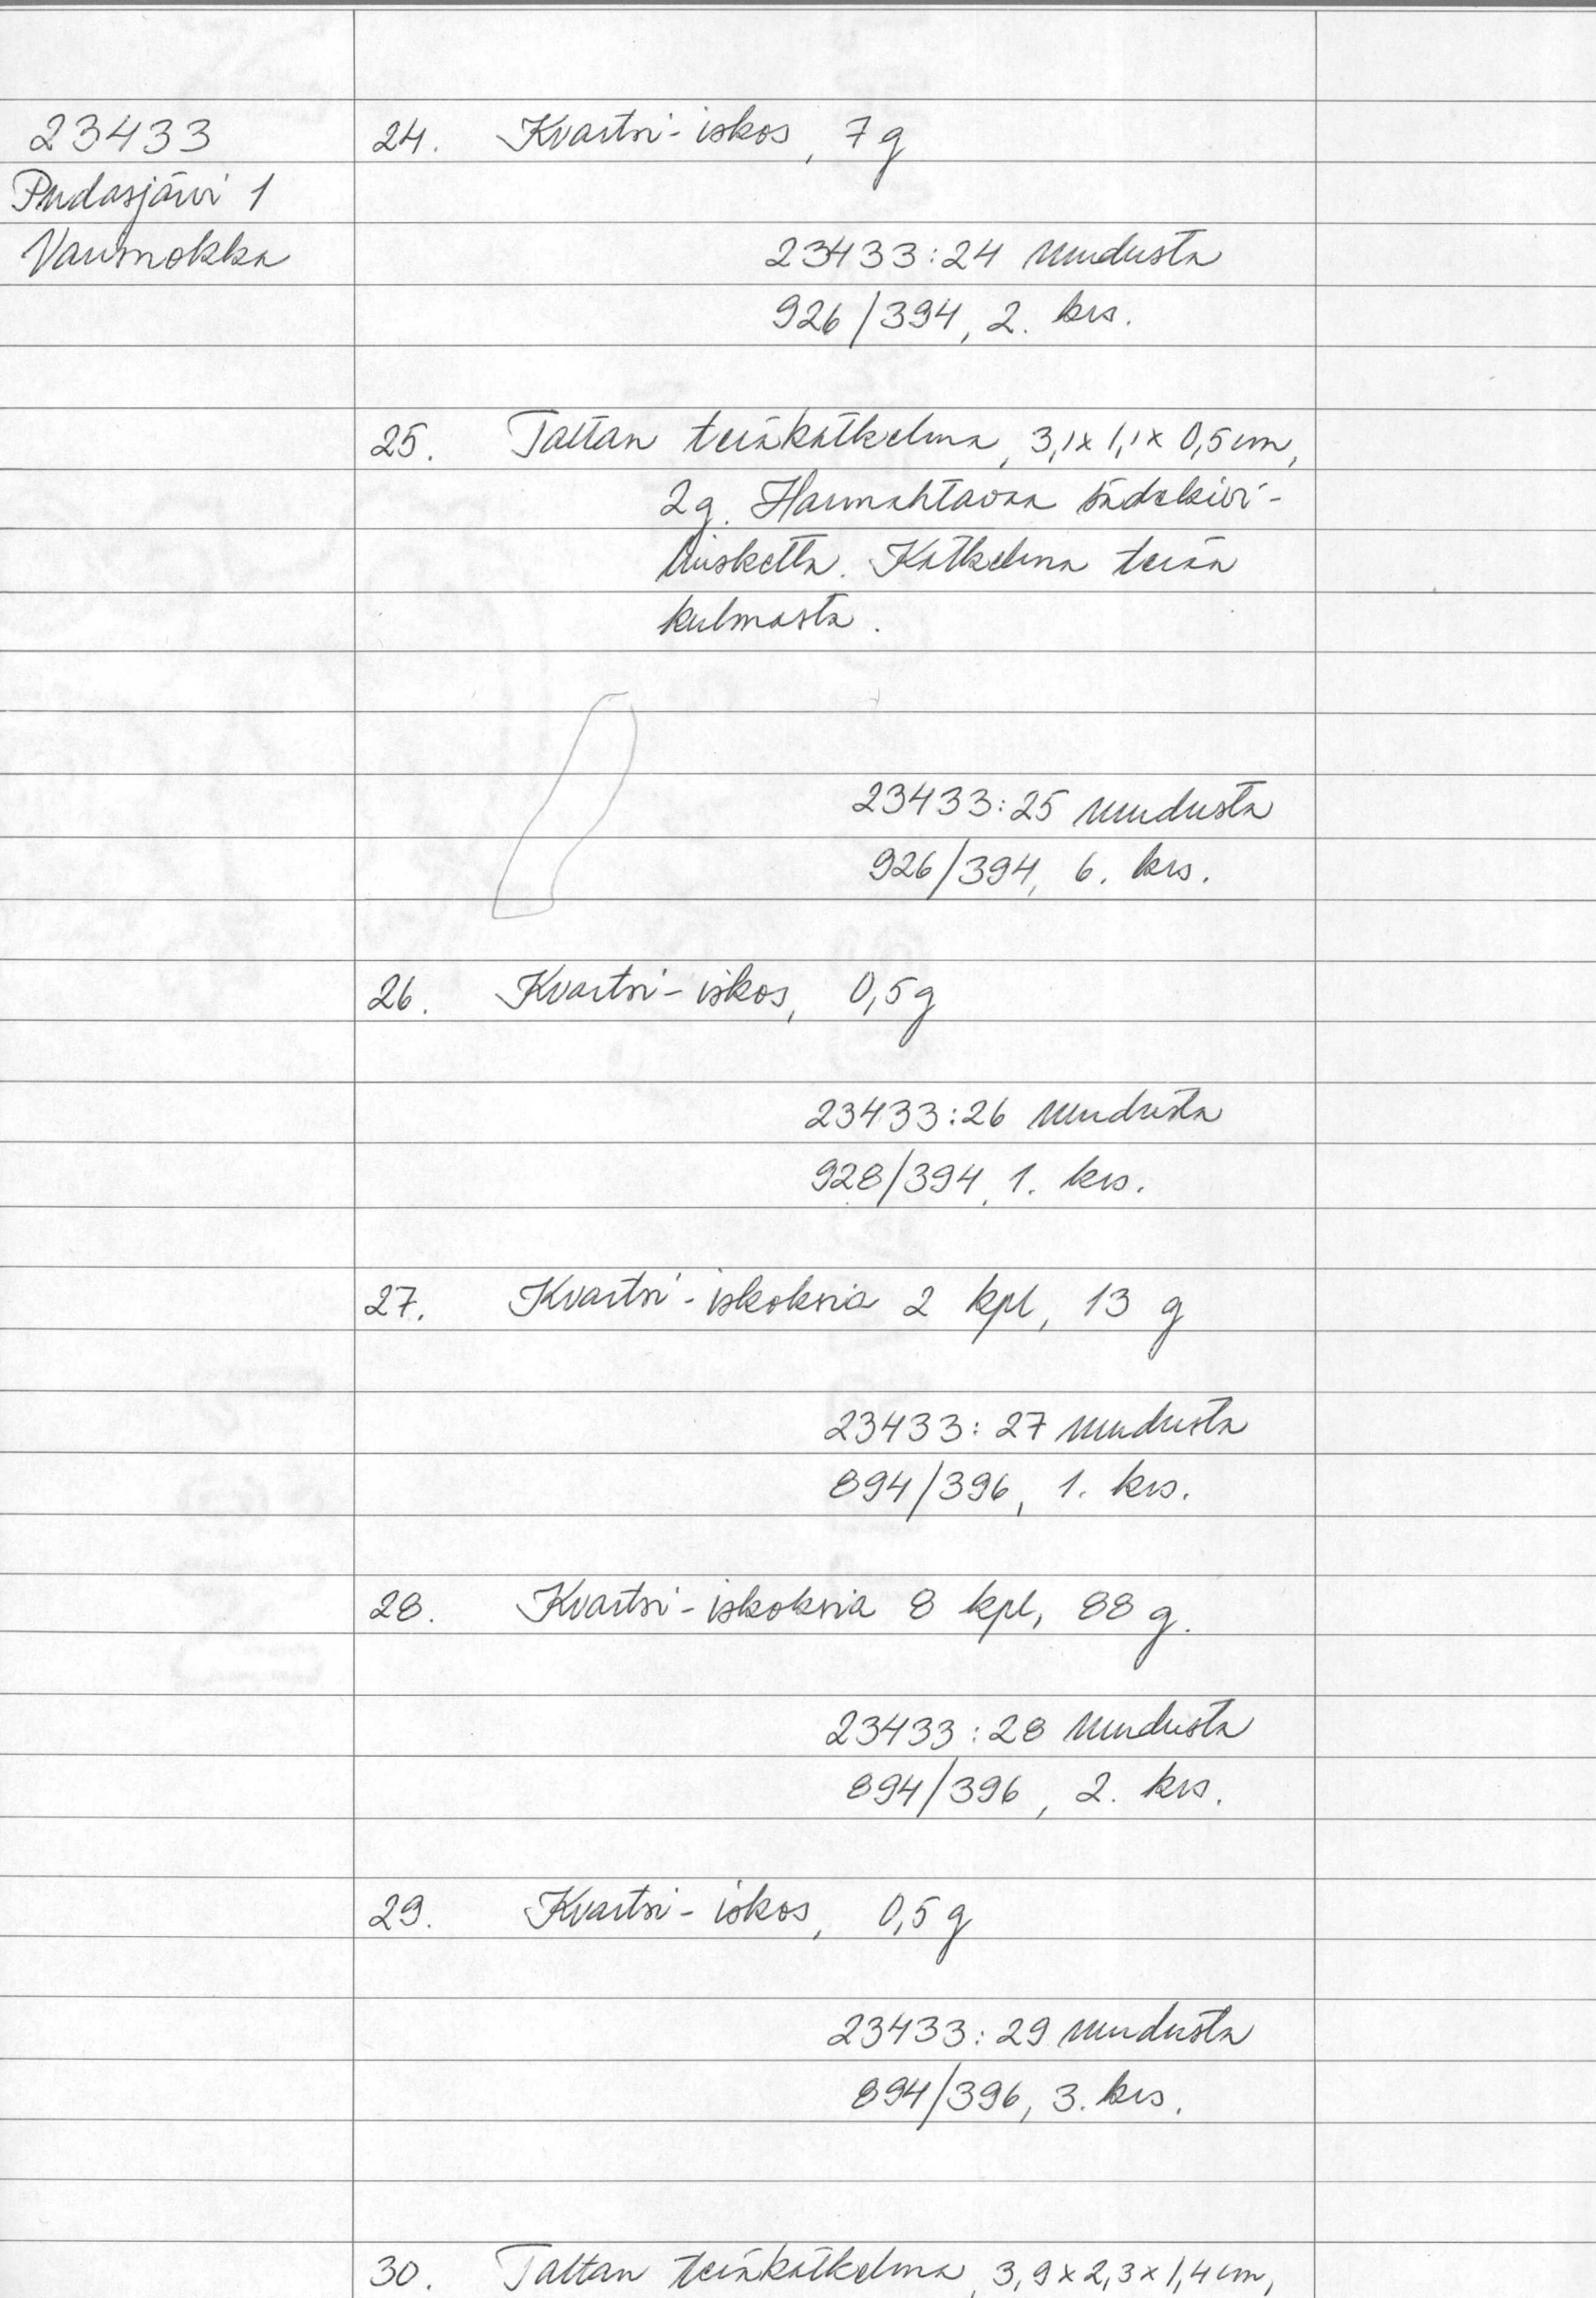 23433
Pudasjärvi 1
Varisnokka
24. Kvartsi-iskos, 7 g
23433:24 ruudusta
926/394, 2. krs.
25. Taltan teräkatkelma, 3,1x1,1x0,5 cm,
2 g. Harmahtavaa sädekivi-
liusketta. Katkelma terän
kulmasta.
23433:25 ruudusta
926/394, 6. krs.
26. Kvartsi-iskos, 0,5 g
23433:26 ruudusta
928/394, 1. krs.
27. Kvartsi-iskoksia 2 kpl, 13 g
23433:27 ruudusta
894/396, 1. krs.
28. Kvartsi-iskoksia 8 kpl, 88 g.
23433:28 ruudusta
894/396, 2. krs.
29. Kvartsi-iskos, 0,5 g
23433:29 ruudusta
894/396, 3. krs.
30. Taltan teräkatkelma, 3,9x2,3x1,4 cm,